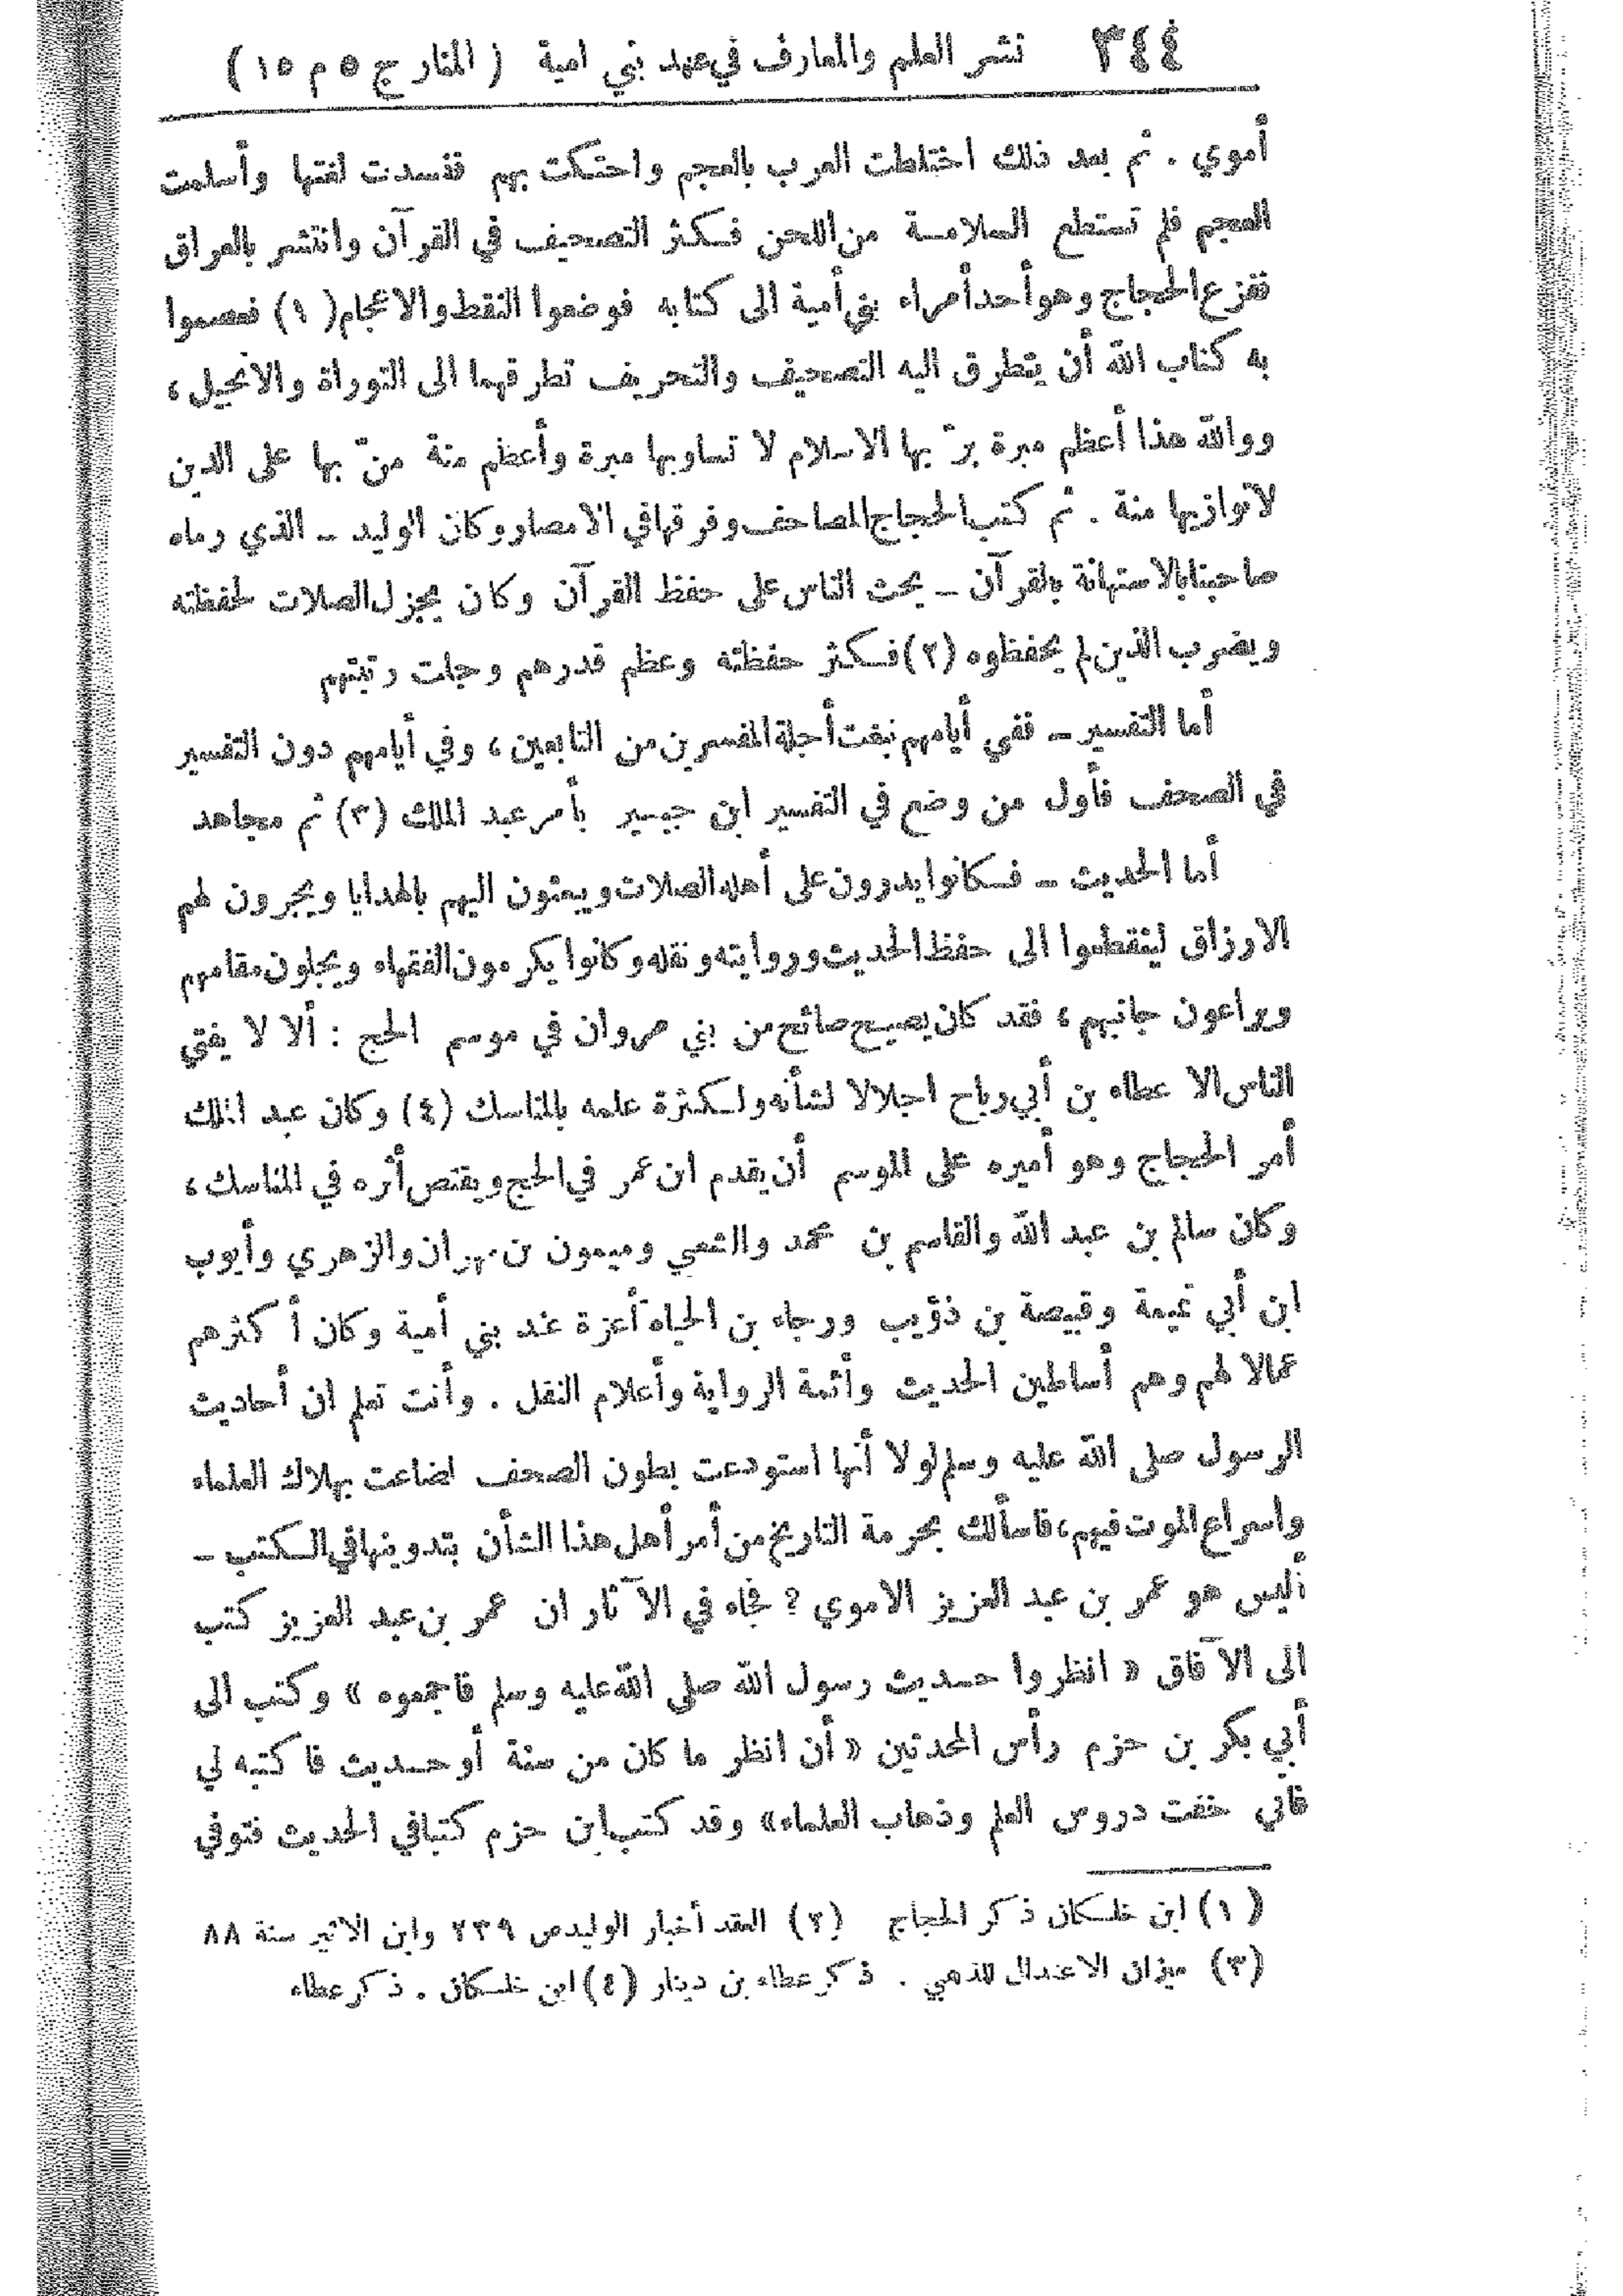 ٣٤٤ نشر العلم والمعارف في عهد بني امية ( المنار ج ٥ م ١٥ )
أموي . ثم بعد ذلك اختلطت العرب بالعجم واحتكت بهم ففسدت لغتها وأسلمت
العجم فلم تستطع السلامة من اللحن فكثر التصحيف في القرآن وانتشر بالعراق
ففزع الحجاج وهو أحد أمراء بني أمية الى كتابه فوضعوا النقط والاعجام (١) فعصموا
به كتاب الله أن يتطرق اليه التصحيف والتحريف تطرقهما الى التوراة والانجيل ،
ووالله هذا أعظم مبرة برّ بها الاسلام لا تساويها مبرة وأعظم منة منّ بها على الدين
لا توازيها منة . ثم كتب الحجاج المصاحف وفرقها في الامصار وكان الوليد ــ الذي رماه
صاحبنا بالاستهانة بالقرآن ــ يحث الناس على حفظ القرآن وكان يجزل الصلات لحفظته
ويضرب الذين لم يحفظوه (٢) فكثر حفظته وعظم قدرهم وجلت رتبتهم
أما التفسير ــ ففي أيامهم نبغت أجلة المفسرين من التابعين ، وفي أيامهم دون التفسير
في الصحف فأول من وضع في التفسير ابن جبير بأمر عبد الملك (٣) ثم مجاهد
أما الحديث ــ فكانوا يدرون على أهله الصلات ويبعثون اليهم بالهدايا ويجرون لهم
الارزاق لينقطعوا الى حفظ الحديث وروايته ونقله وكانوا يكرمون الفقهاء ويجلون مقامهم
ويراعون جانبهم ، فقد كان يصيح صائح من بني مروان في موسم الحج : ألا لا يفتي
الناس الا عطاء بن أبي رباح اجلالا لشأنه ولكثرة علمه بالمناسك (٤) وكان عبد الملك
أمر الحجاج وهو أميره على الموسم أن يقدم ابن عمر في الحج ويقتص أثره في المناسك ،
وكان سالم بن عبد الله والقاسم بن محمد والشعبي وميمون بن مهران والزهري وأيوب
ابن أبي تميمة وقبيصة بن ذؤيب ورجاء بن الحياة أعزة عند بني أمية وكان أكثرهم
عمالا لهم وهم أساطين الحديث وأئمة الرواية وأعلام النقل . وأنت تعلم ان أحاديث
الرسول صلى الله عليه وسلم لولا أنها استودعت بطون الصحف لضاعت بهلاك العلماء
واسراع الموت فيهم، فاسألك بحرمة التاريخ من أمر أهل هذا الشأن بتدوينها في الكتب ــ
أليس هو عمر بن عبد العزيز الاموي ? فجاء في الآثار ان عمر بن عبد العزيز كتب
الى الآفاق « انظروا حديث رسول الله صلى الله عليه وسلم فاجمعوه » وكتب الى
أبي بكر بن حزم رأس المحدثين « أن انظر ما كان من سنة أو حديث فاكتبه لي
فاني خفت دروس العلم وذهاب العلماء » وقد كتب ابن حزم كتبا في الحديث فتوفي
(١) ابن خلكان ذكر الحجاج (٢) العقد أخبار الوليد ص ٢٣٩ وابن الاثير سنة ٨٨
(٣) ميزان الاعتدال للذهبي . ذكر عطاء بن دينار (٤) ابن خلكان . ذكر عطاء